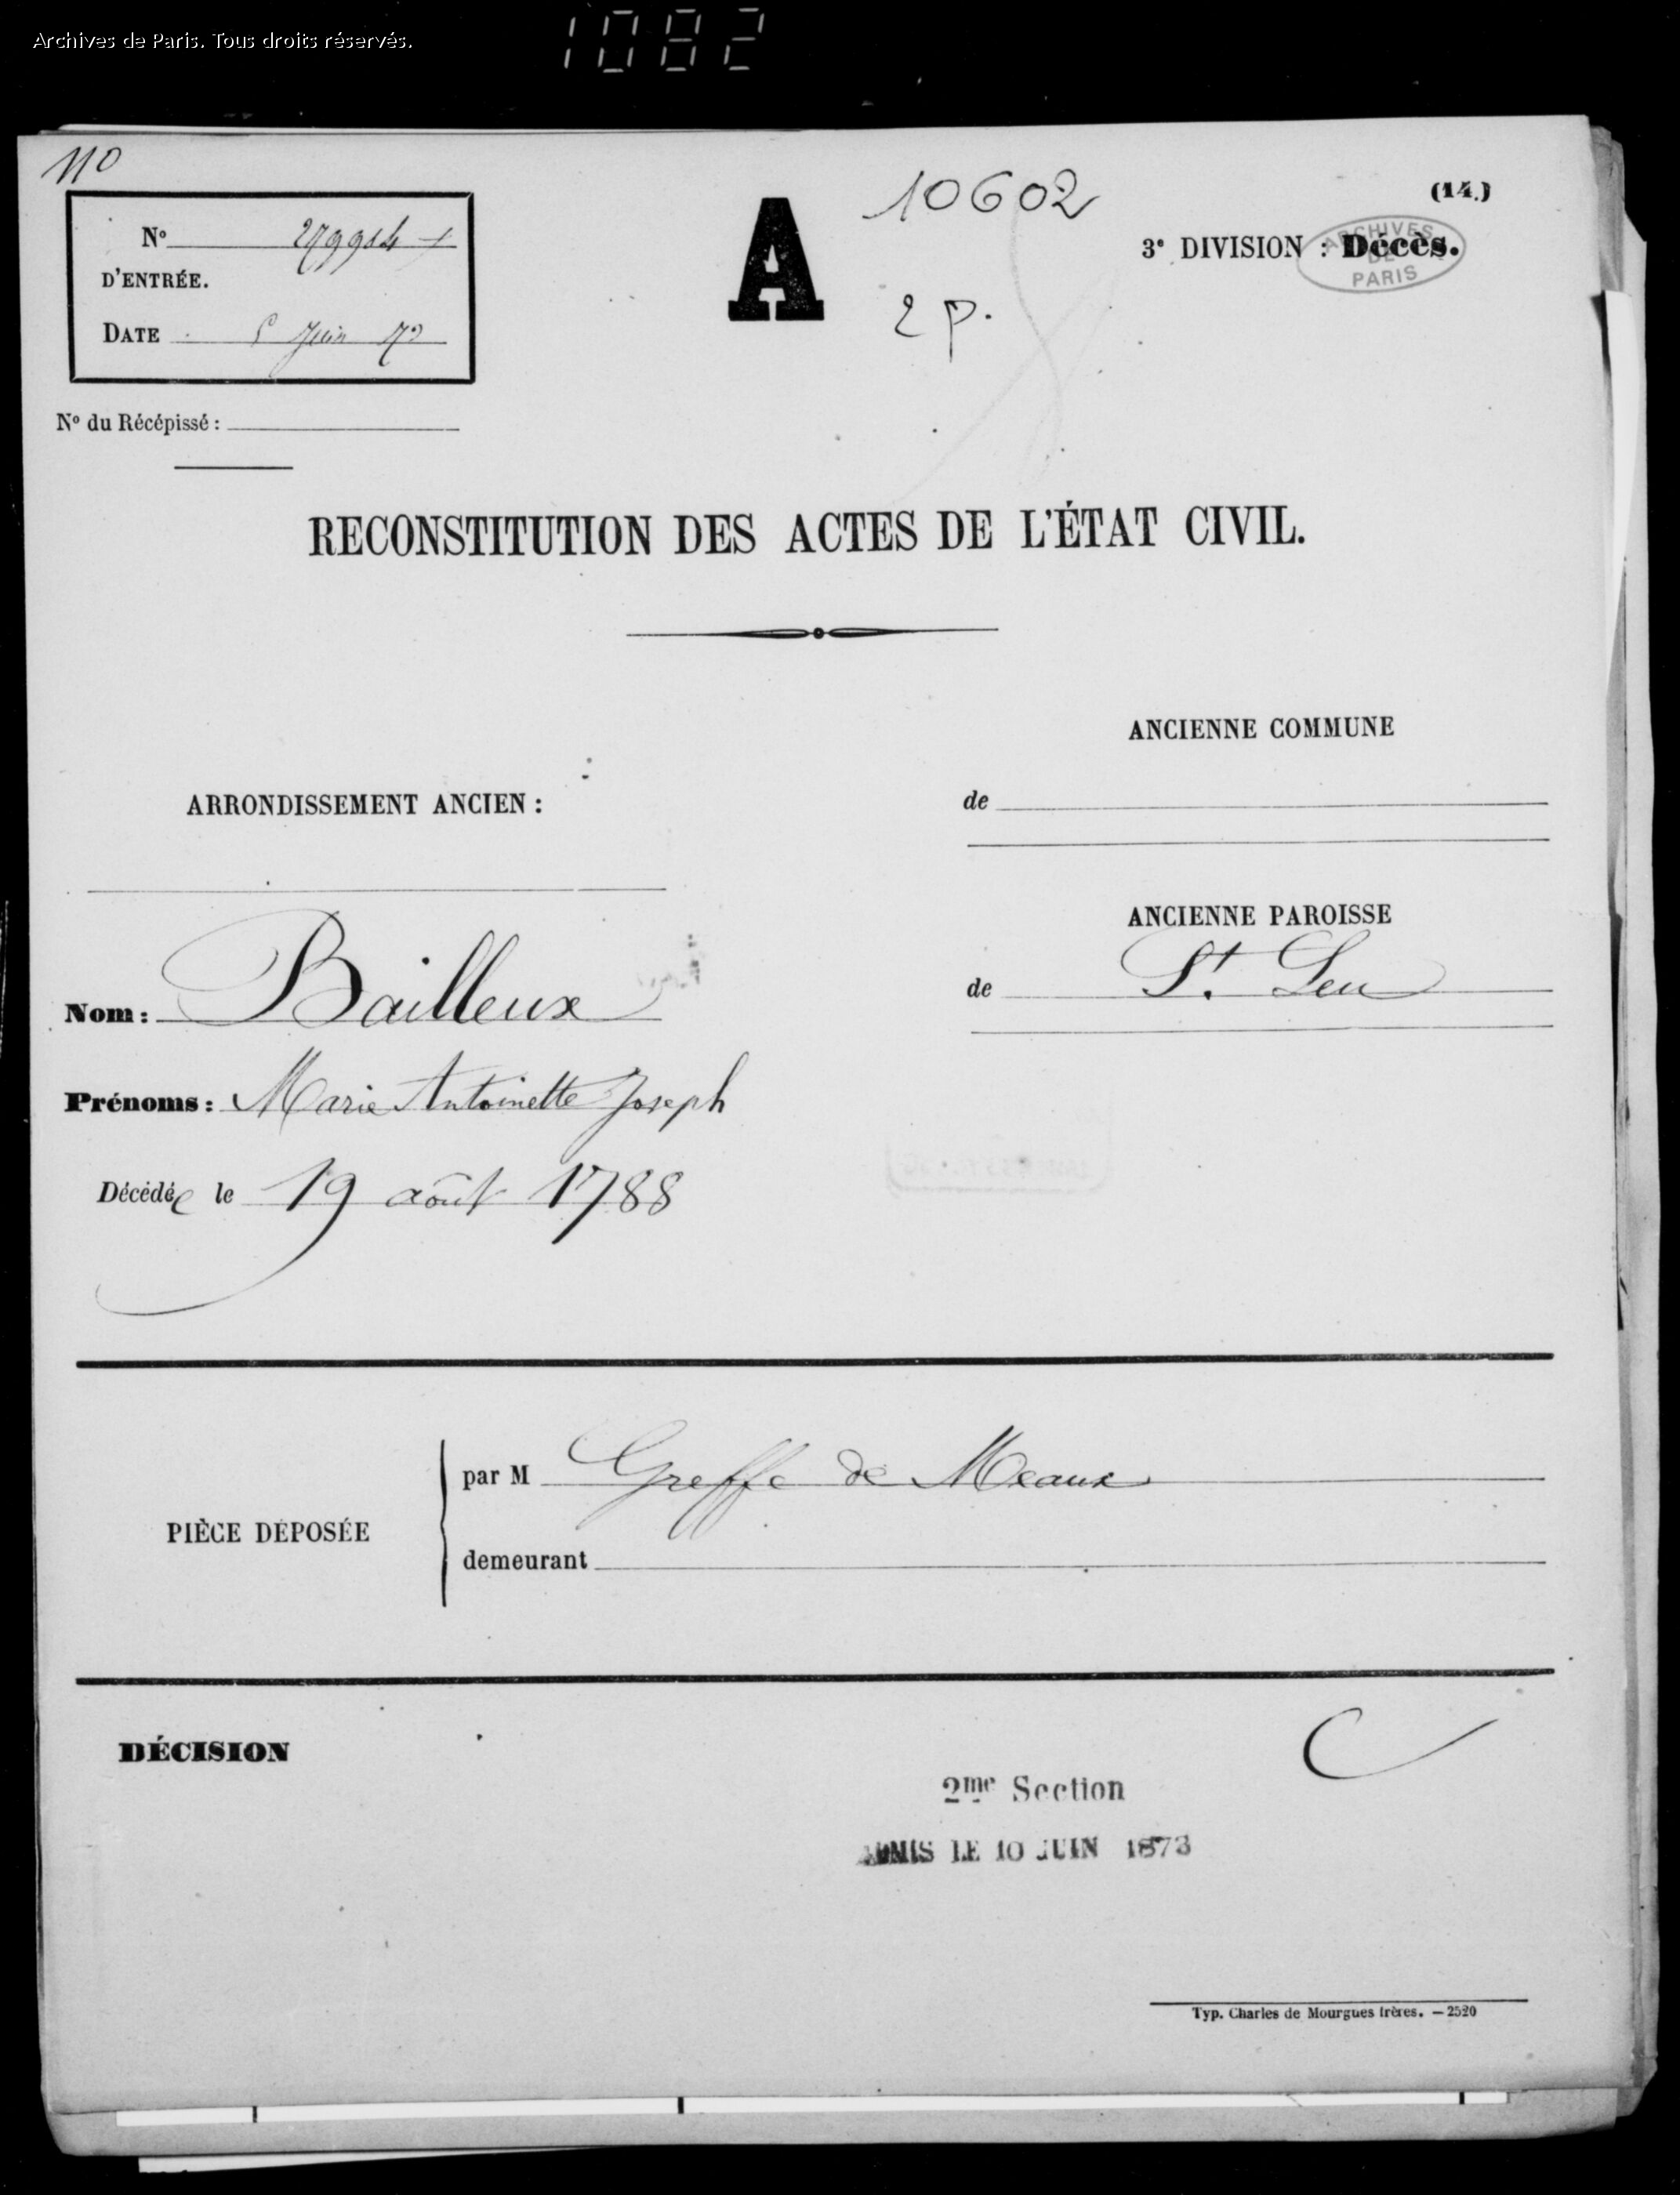 Archives de Paris. Tous droits réservés.
1082
110
10602
(14.)
N° 279914
D'ENTRÉE.
DATE 5 Juin 73
A
2 p.
3e DIVISION : Décès.
ARCHIVES
DE
PARIS
N° du Récépissé :
RECONSTITUTION DES ACTES DE L'ÉTAT CIVIL.
ANCIENNE COMMUNE
de
ARRONDISSEMENT ANCIEN :
ANCIENNE PAROISSE
de St. Leu
Nom : Bailleux
Prénoms : Marie Antoinette Joseph
Décédée le 19 août 1788
PIÈCE DÉPOSÉE
par M Greffe de Meaux
demeurant
DÉCISION
2me Section
ADMIS LE 10 JUIN 1873
Typ. Charles de Mourgues frères. — 2520